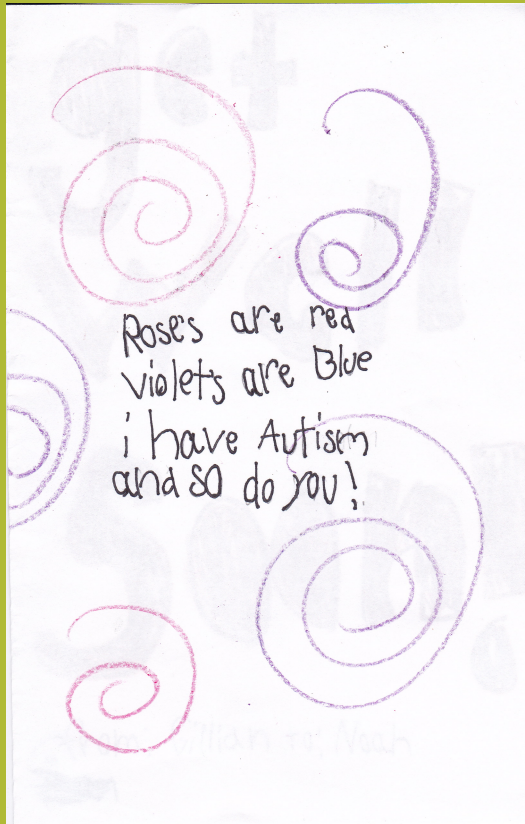 Rose's are red
violet's are Blue
i have Autism
and so do you!